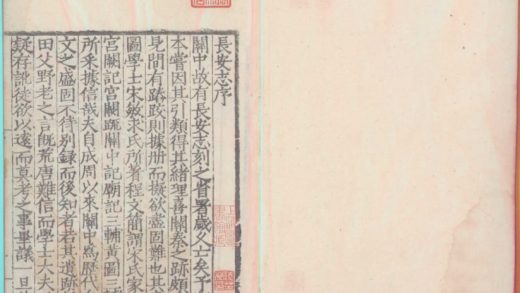 長安志序
關中故有長安志刻之省署歲久亡矣予
本嘗因其引類得其緒理善關秦之跡頗
見間有踳駮則據册而擬欲盡固難也其
圖學士宋敏求氏所著程文簡謂宋氏家
宮闕記宮闕䟽關中記廟記三輔黃圖三
所采據信哉夫自成周以來關中爲歷代
文之盛固不待别録而後知者若其遺跡
田父野老之言旣荒唐難信而學士大夫
疑存訛徒欲以遠而莫考之事畢議一旦